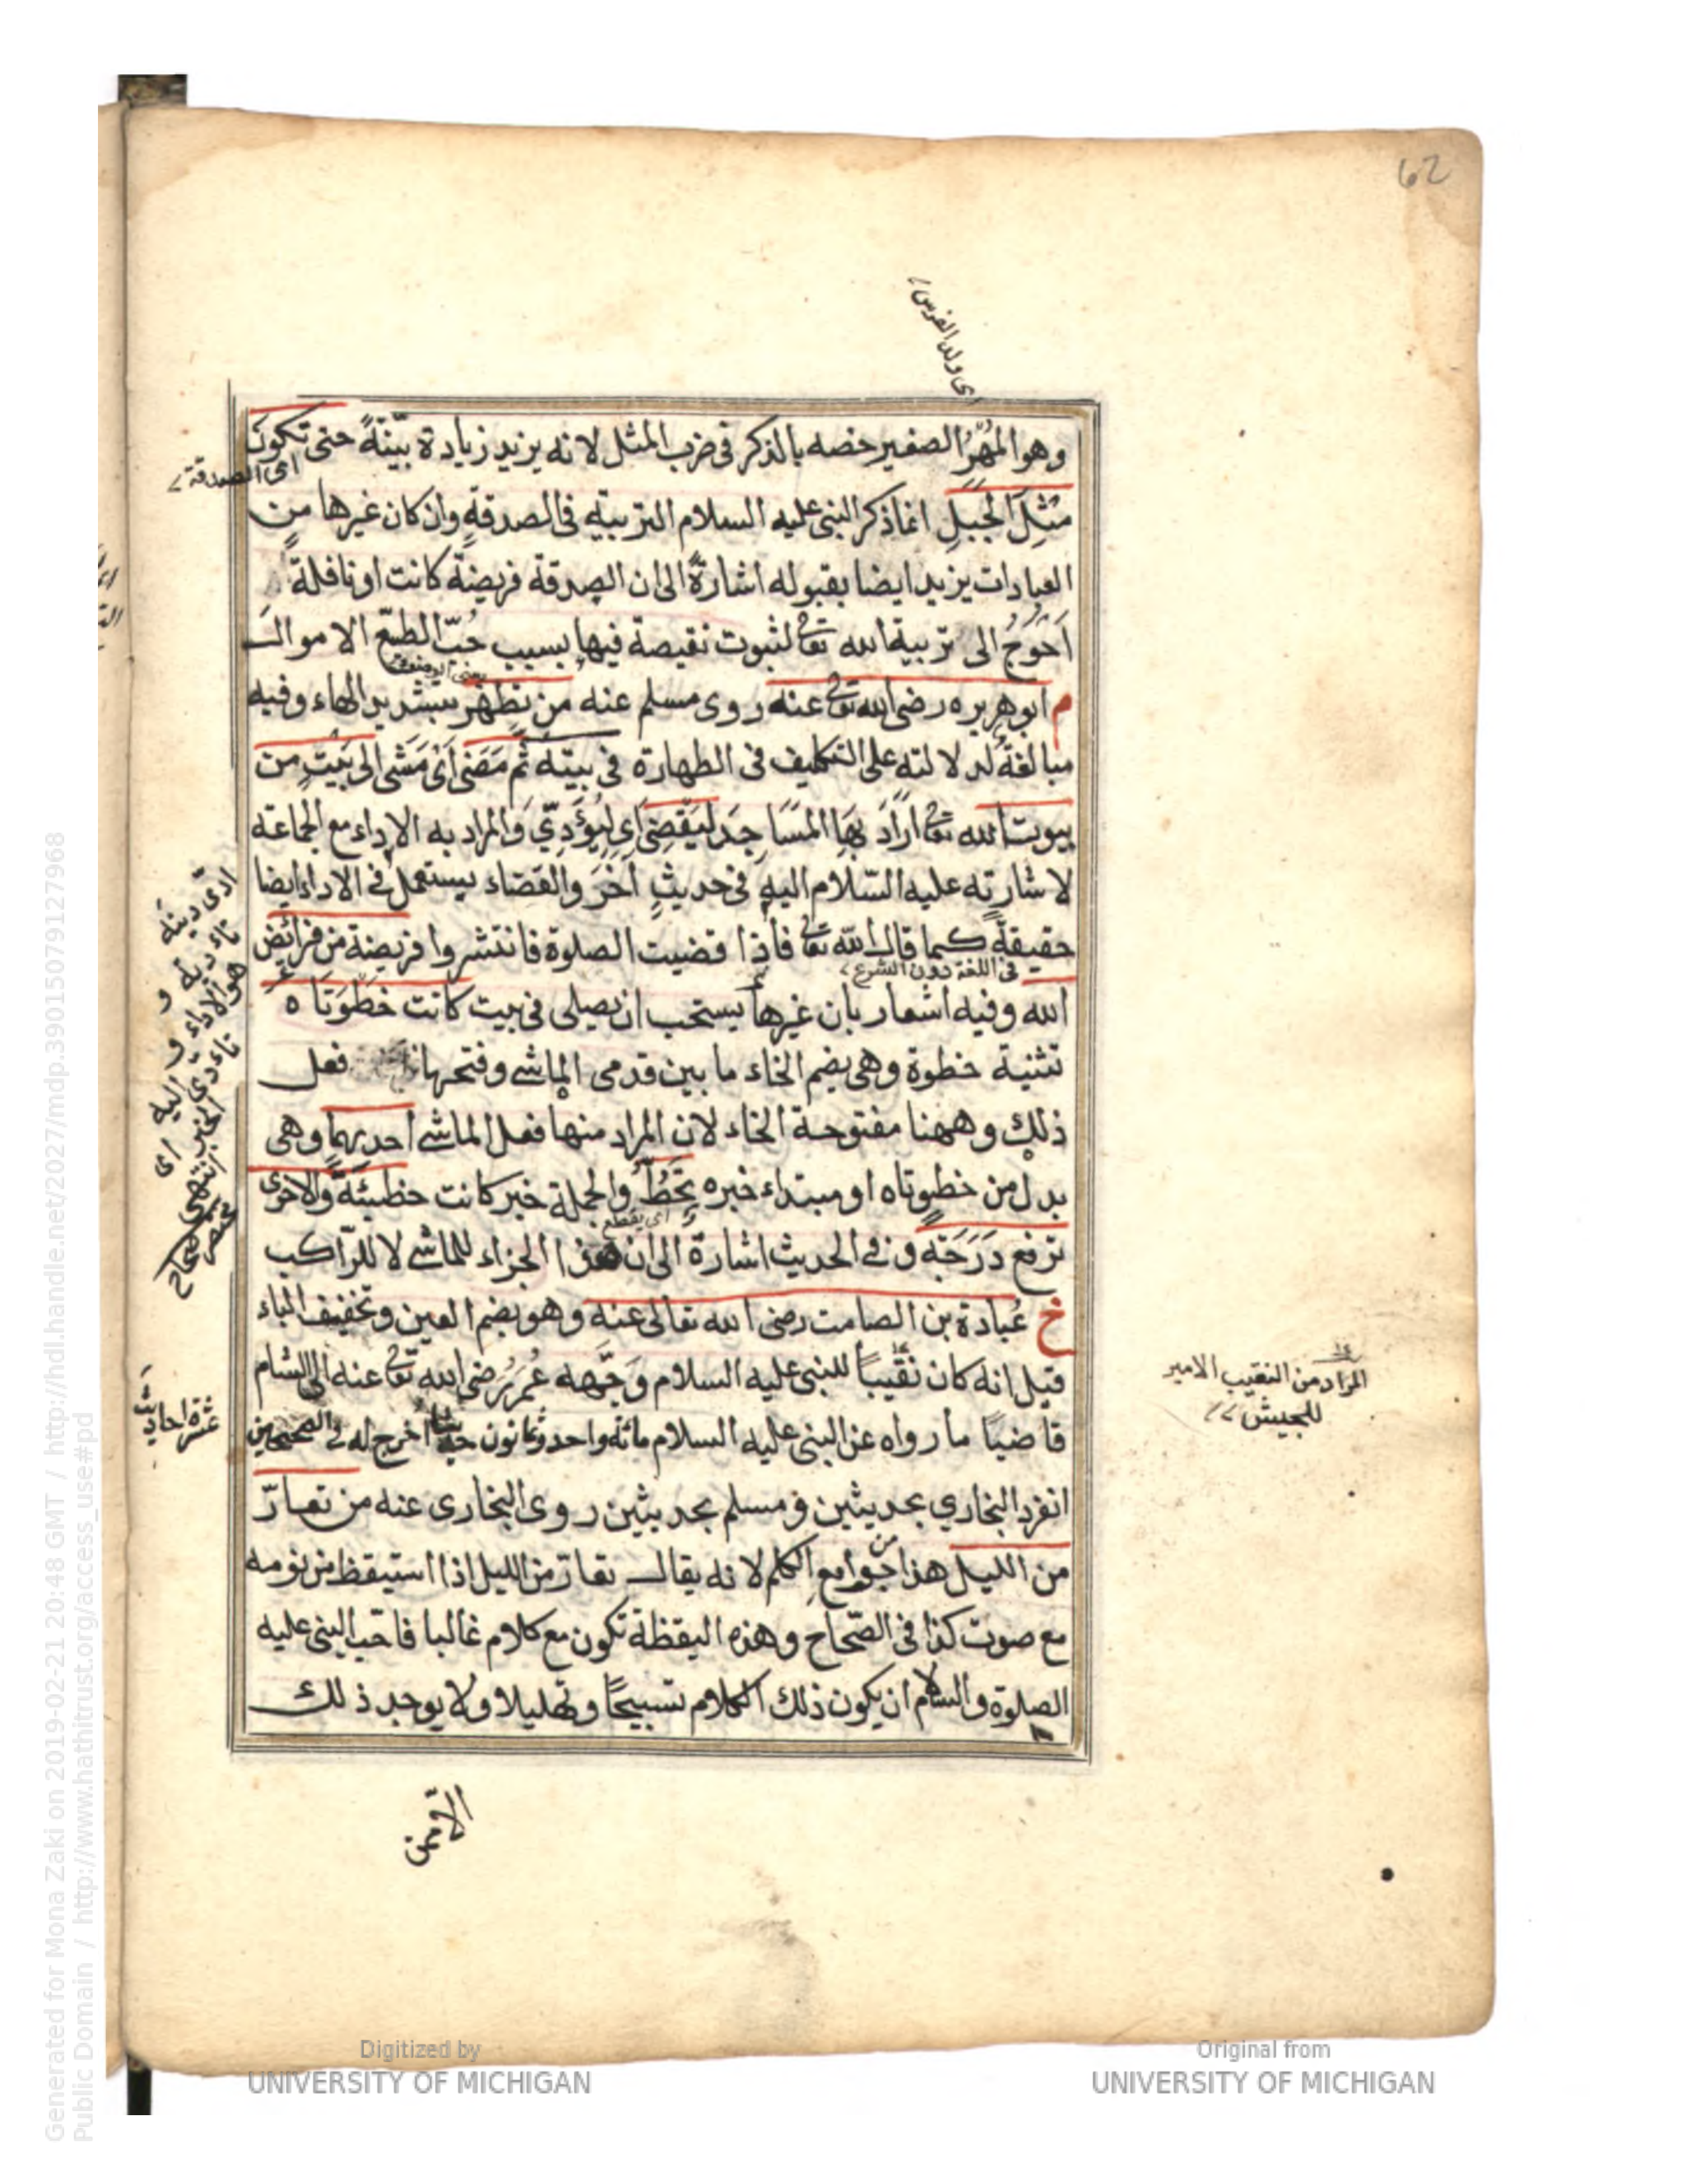 62
اى ولد الفرس
وهو المُهْرُ الصغير خصه بالذكر فى ضرب المثل لانه يزيد زيادة بيّنةً حتى تكون
اى الصدقة
مثلَ الجَبَلِ انما ذكر النبى عليه السلام التربية فى الصدقةِ وان كان غيرها من
العبادات يزيد ايضا بقبوله اشارةً الى ان الصدقة فريضةً كانت او نافلةً
اَحْوَجُ الى تربية الله تعالى لثبوت نقيصة فيها بسبب حُبّ الطبع الاموال
م ابو هريره رضى الله تعالى عنه روى مسلم عنه من تطهّر بتشديد الهاء وفيه
مبالغةٌ لدلالته على التكليف فى الطهارة فى بيته ثُم مَضَى اَىْ مَشَى الى بَيْتٍ من
بيوت الله تعالى اَرَادَ بهَا المَسَاجِدَ ليَقضِىَ اى ليُؤَدِّيَ وَالمراد به الاداء مع الجماعة
لاشارته عليه السّلام اليه فى حديثٍ آخَرَ والقضاء يستعمل فى الاداء ايضا
حقيقةً كما قال الله تعالى فاذا قضيت الصلوة فانتشروا فريضة من فرائض
فى اللغة دون الشرع
الله وفيه اشعار بان غيرها يستحب ان يصلى فى بيت كانت خطوَتَاه
تثنية خطوة وهى بضم الخاء ما بين قدمى الماشى وفتحها فعل
ذلك وههنا مفتوحة الخاء لان المراد منها فعل الماشى احديهما وهى
بدل من خطوتاه او مبتداء خبره تحَطُّ والجملة خبر كانت خطيئةً والاخرى
ترفع دَرَجَة وفى الحديث اشارة الى ان هذا الجزاء للماشى لا للرّاكب
خ عُبادة بن الصامت رضى الله تعالى عنه وهو بضم العين وتخفيف الباء
قيل انه كان نقيبًا للنبى عليه السلام وَجّهه عُمَرُ رضى الله تعالى عنه الى الشام
قاضيًا ما رواه عن النبى عليه السلام مائة واحد وثمانون حديثا اخرج له فى الصحيحين
انفرد البخاري بحديثين ومسلم بحديثين روى البخارى عنه من تعارّ
من الليل هذا من جوامع الكلم لانه يقال تعارّ من الليل اذا استيقظ من نومه
مع صوت كذا فى الصّحاح وهذه اليقظة تكون مع كلام غالبا فاحب النبى عليه
الصلوة والسلام ان يكون ذلك الكلام تسبيحًا وتهليلا ولا يوجد ذلك
الا ممن
ادى دينه
تادية و
هو الاداء و
تادى اليه
الخبر اى
انتهى
صحاح
عشرة احاديث
المراد من النقيب الامير
للجيش
Digitized by
UNIVERSITY OF MICHIGAN
Original from
UNIVERSITY OF MICHIGAN
Generated for Mona Zaki on 2019-02-21 20:48 GMT / http://hdl.handle.net/2027/mdp.39015079127968
Public Domain / http://www.hathitrust.org/access_use#pd